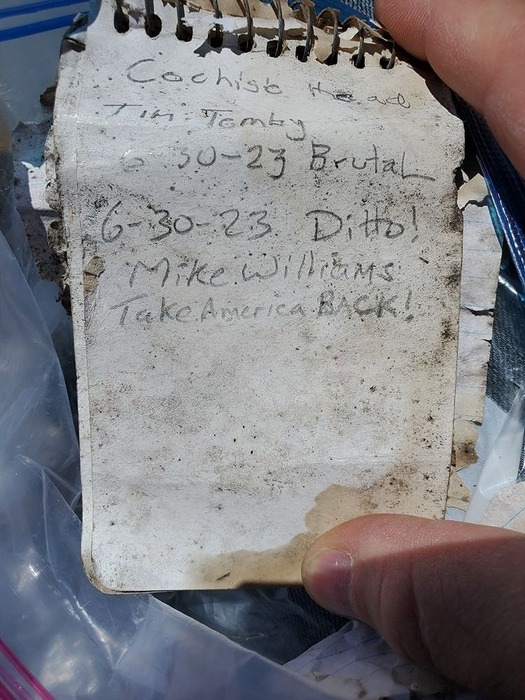 Cochise Head
Jim Tomby
6 30-23 Brutal
6-30-23 Ditto!
Mike Williams
Take America BACK!